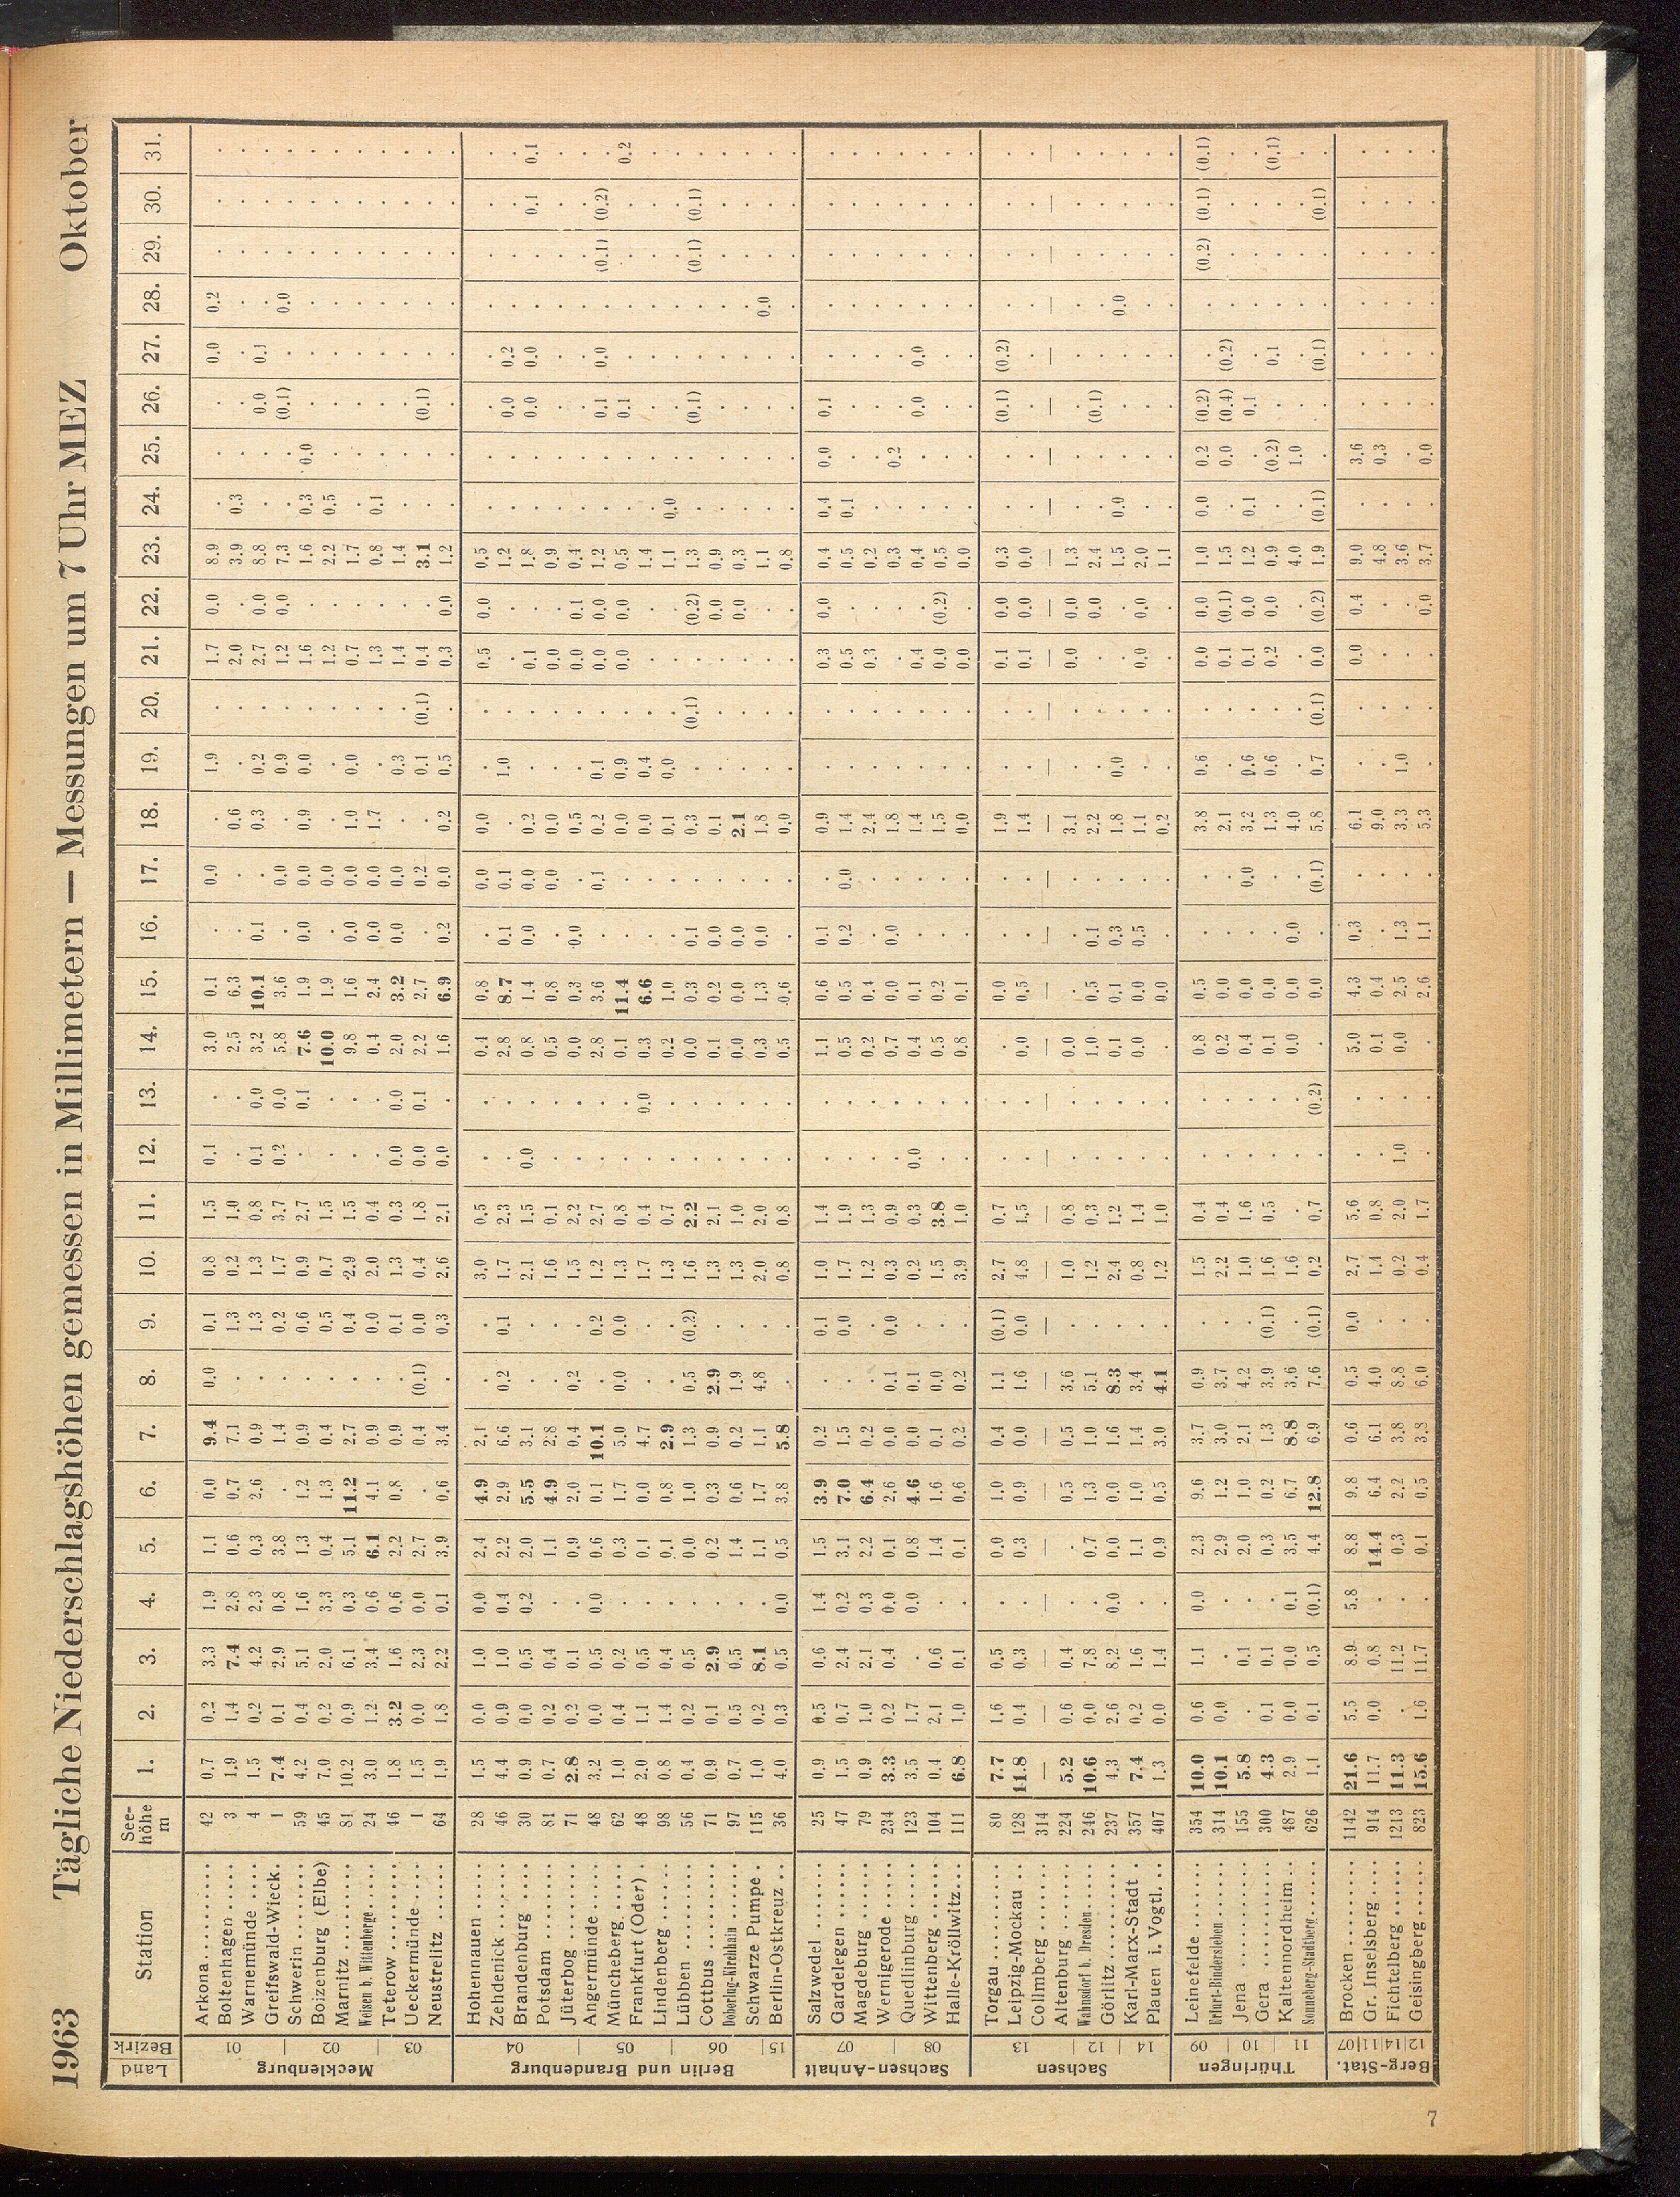 1963 Tägliche Niederschlagshöhen gemessen in Millimetern — Messungen um 7 Uhr MEZ Oktober
Land Bezirk Station Seehöhe m 1. 2. 3. 4. 5. 6. 7. 8. 9. 10. 11. 12. 13. 14. 15. 16. 17. 18. 19. 20. 21. 22. 23. 24. 25. 26. 27. 28. 29. 30. 31.
Mecklenburg 01 02 03
Arkona 42 0.7 0.2 3.3 1.9 1.1 0.0 9.4 0.0 0.1 0.8 1.5 0.1 . 3.0 0.1 . 0.0 . 1.9 . 1.7 0.0 8.9 . . . 0.0 0.2 . . .
Boltenhagen 3 1.9 1.4 7.4 2.8 0.6 0.7 7.1 . 1.3 0.2 1.0 . . 2.5 6.3 . . 0.6 . . 2.0 . 3.9 0.3 . . . . . . .
Warnemünde 4 1.5 0.2 4.2 2.3 0.3 2.6 0.9 . 1.3 1.3 0.8 0.1 0.0 3.2 10.1 0.1 . 0.3 0.2 . 2.7 0.0 8.8 . . 0.0 0.1 . . . .
Greifswald-Wieck 1 7.4 0.1 2.9 0.8 3.8 . 1.4 . 0.2 1.7 3.7 0.2 0.0 5.8 3.6 . 0.0 . 0.9 . 1.2 0.0 7.3 . . (0.1) . 0.0 . . .
Schwerin 59 4.2 0.4 5.1 1.6 1.3 1.2 0.9 . 0.6 0.9 2.7 . 0.1 7.6 1.9 0.0 0.0 0.9 0.0 . 1.6 . 1.6 0.3 0.0 . . . . . .
Boizenburg (Elbe) 45 7.0 0.2 2.0 3.3 0.4 1.3 0.4 . 0.5 0.7 1.5 . . 10.0 1.9 . 0.0 . . . 1.2 . 2.2 0.5 . . . . . . .
Marnitz 81 10.2 0.9 6.1 0.3 5.1 11.2 2.7 . 0.4 2.9 1.5 . . 9.8 1.6 0.0 0.0 1.0 0.0 . 0.7 . 1.7 . . . . . . . .
Weisen b. Wittenberge 24 3.0 1.2 3.4 0.6 6.1 4.1 0.9 . 0.0 2.0 0.4 . . 0.4 2.4 0.0 0.0 1.7 . . 1.3 . 0.8 0.1 . . . . . . .
Teterow 46 1.8 3.2 1.6 0.6 2.2 0.8 0.9 . 0.1 1.3 0.3 0.0 0.0 2.0 3.2 0.0 0.0 . 0.3 . 1.4 . 1.4 . . . . . . . .
Ueckermünde 1 1.5 0.0 2.3 0.0 2.7 . 0.4 (0.1) 0.0 0.4 1.8 0.0 0.1 2.2 2.7 . 0.2 . 0.1 (0.1) 0.4 . 3.1 . . (0.1) . . . . .
Neustrelitz 64 1.9 1.8 2.2 0.1 3.9 0.6 3.4 . 0.3 2.6 2.1 0.0 . 1.6 6.9 0.2 0.0 0.2 0.5 . 0.3 0.0 1.2 . . . . . . . .
Berlin und Brandenburg 04 05 06 15
Hohennauen 28 1.5 0.0 1.0 0.0 2.4 4.9 2.1 . . 3.0 0.5 . . 0.4 0.8 . 0.0 0.0 . . 0.5 0.0 0.5 . . . . . . . .
Zehdenick 46 4.4 0.9 1.0 0.4 2.2 2.9 6.6 0.2 0.1 1.7 2.3 . . 2.8 8.7 0.1 0.1 . 1.0 . . . 1.2 . . 0.0 0.2 . . . .
Brandenburg 30 0.9 0.0 0.5 0.2 2.0 5.5 3.1 . . 2.1 1.5 0.0 . 0.8 1.4 0.0 0.0 0.2 . . 0.1 . 1.8 . . 0.0 0.0 . . 0.1 0.1
Potsdam 81 0.7 0.2 0.4 . 1.1 4.9 2.8 . . 1.6 0.1 . . 0.5 0.8 . 0.0 0.0 . . 0.0 . 0.9 . . . . . . . .
Jüterbog 71 2.8 0.2 0.1 . 0.9 2.0 0.4 0.2 . 1.5 2.2 . . 0.0 0.3 0.0 . 0.5 . . 0.0 0.1 0.4 . . . . . . . .
Angermünde 48 3.2 0.0 0.5 0.0 0.6 0.1 10.1 . 0.2 1.2 2.7 . . 2.8 3.6 . 0.1 0.2 0.1 . 0.0 0.0 1.2 . . 0.1 0.0 . (0.1) (0.2) .
Müncheberg 62 1.0 0.4 0.2 . 0.3 1.7 5.0 0.0 0.0 1.3 0.8 . . 0.1 11.4 . . 0.0 0.9 . 0.0 0.0 0.5 . . 0.1 . . . . 0.2
Frankfurt (Oder) 48 2.0 1.1 0.5 . 0.1 0.0 4.7 . . 1.7 0.4 . 0.0 0.3 6.6 . . 0.0 0.4 . . . 1.4 . . . . . . . .
Lindenberg 98 0.8 1.4 0.4 . 0.1 0.8 2.9 . . 1.3 0.7 . . 0.2 1.0 . . 0.1 0.0 . . . 1.1 0.0 . . . . . . .
Lübben 56 0.4 0.2 0.5 . 0.0 1.0 1.3 0.5 (0.2) 1.6 2.2 . . 0.0 0.3 0.1 . 0.3 . (0.1) . (0.2) 1.3 . . (0.1) . . (0.1) (0.1) .
Cottbus 71 0.9 0.1 2.9 . 0.2 0.3 0.9 2.9 . 1.3 2.1 . . 0.1 0.2 0.0 . 0.1 . . . 0.0 0.9 . . . . . . . .
Doberlug-Kirchhain 97 0.7 0.5 0.5 . 1.4 0.6 0.2 1.9 . 1.3 1.0 . . 0.0 0.0 0.0 . 2.1 . . . 0.0 0.3 . . . . . . . .
Schwarze Pumpe 115 1.0 0.2 8.1 . 1.1 1.7 1.1 4.8 . 2.0 2.0 . . 0.3 1.3 0.0 . 1.8 . . . . 1.1 . . . . 0.0 . . .
Berlin-Ostkreuz 36 4.0 0.3 0.5 0.0 0.5 3.8 5.8 . . 0.8 0.8 . . 0.5 0.6 . . 0.0 . . . . 0.8 . . . . . . . .
Sachsen-Anhalt 07 08
Salzwedel 25 0.9 0.5 0.6 1.4 1.5 3.9 0.2 . 0.1 1.0 1.4 . . 1.1 0.6 0.1 . 0.9 . . 0.3 0.0 0.4 0.4 0.0 0.1 . . . . .
Gardelegen 47 1.5 0.7 2.4 0.2 3.1 7.0 1.5 . 0.0 1.7 1.9 . . 0.5 0.5 0.2 0.0 1.4 . . 0.5 . 0.5 0.1 . . . . . . .
Magdeburg 79 0.9 1.0 2.1 0.3 2.2 6.4 0.2 . . 1.2 1.3 . . 0.2 0.4 . . 2.4 . . 0.3 . 0.2 . . . . . . . .
Wernigerode 234 3.3 0.2 0.4 0.0 0.1 2.6 0.0 0.1 0.0 0.3 0.9 . . 0.7 0.0 0.0 . 1.8 . . . . 0.3 . 0.2 . . . . . .
Quedlinburg 123 3.5 1.7 . 0.0 0.8 4.6 0.0 0.1 . 0.2 0.3 0.0 . 0.4 0.1 . . 1.4 . . 0.4 . 0.4 . . 0.0 0.0 . . . .
Wittenberg 104 0.4 2.1 0.6 . 1.4 1.6 0.1 0.0 . 1.5 3.8 . . 0.5 0.2 . . 1.5 . . 0.0 (0.2) 0.5 . . . . . . . .
Halle-Kröllwitz 111 6.8 1.0 0.1 . 0.1 0.6 0.2 0.2 . 3.9 1.0 . . 0.8 0.1 . . 0.0 . . 0.0 . 0.0 . . . . . . . .
Sachsen 13 12 14
Torgau 80 7.7 1.6 0.5 . 0.0 1.0 0.4 1.1 (0.1) 2.7 0.7 . . . 0.0 . . 1.9 . . 0.1 0.0 0.3 . . (0.1) (0.2) . . . .
Leipzig-Mockau 128 11.8 0.4 0.3 . 0.3 0.9 0.0 1.6 0.0 4.8 1.5 . . 0.0 0.5 . . 1.4 . . 0.1 0.0 0.0 . . . . . . . .
Collmberg 314 — — — — — — — — — — — — — — — — — — — — — — — — — — — — — — —
Altenburg 224 5.2 0.6 0.4 . . 0.5 0.5 3.6 . 1.0 0.8 . . 0.0 . . . 3.1 . . 0.0 0.0 1.3 . . . . . . . .
Wahnsdorf b. Dresden 246 10.6 0.0 7.8 . 0.7 1.3 1.0 5.1 . 1.2 0.3 . . 1.0 0.5 0.1 . 2.2 . . . 0.0 2.4 . . (0.1) . . . . .
Görlitz 237 4.3 2.6 8.2 0.0 0.0 0.0 1.6 8.3 . 2.4 1.2 . . 0.1 0.1 0.3 . 1.8 0.0 . . . 1.5 0.0 . . . 0.0 . . .
Karl-Marx-Stadt 357 7.4 0.2 1.6 . 1.1 1.0 1.4 3.4 . 0.8 1.4 . . 0.0 0.0 0.5 . 1.1 . . 0.0 0.0 2.0 . . . . . . . .
Plauen i. Vogtl. 407 1.3 0.0 1.4 . 0.9 0.5 3.0 4.1 . 1.2 1.0 . . . 0.0 . . 0.2 . . . . 1.1 . . . . . . . .
Thüringen 09 10 11
Leinefelde 354 10.0 0.6 1.1 0.0 2.3 9.6 3.7 0.9 . 1.5 0.4 . . 0.8 0.5 . . 3.8 0.6 . 0.0 0.0 1.0 0.0 0.2 (0.2) . . (0.2) (0.1) (0.1)
Erfurt-Bindersleben 314 10.1 0.0 . . 2.9 1.2 3.0 3.7 . 2.2 0.4 . . 0.2 0.0 . . 2.1 . . 0.1 (0.1) 1.5 . 0.0 (0.4) (0.2) . . . .
Jena 155 5.8 . 0.1 . 2.0 1.0 2.1 4.2 . 1.0 1.6 . . 0.4 0.0 . 0.0 3.2 0.6 . 0.1 0.0 1.2 0.1 . 0.1 . . . . .
Gera 300 4.3 0.1 0.1 . 0.3 0.2 1.3 3.9 (0.1) 1.6 0.5 . . 0.1 0.0 . . 1.3 0.6 . 0.2 0.0 0.9 . (0.2) . 0.1 . . . (0.1)
Kaltennordheim 487 2.9 0.0 0.0 0.1 3.5 6.7 8.8 3.6 . 1.6 . . . 0.0 0.0 0.0 . 4.0 . . . . 4.0 . 1.0 . . . . . .
Sonneberg-Stadtberg 626 1.1 0.1 0.5 (0.1) 4.4 12.8 6.9 7.6 (0.1) 0.2 0.7 . (0.2) . 0.0 . (0.1) 5.8 0.7 (0.1) 0.0 (0.2) 1.9 (0.1) . . (0.1) . . (0.1) .
Berg-Stat. 12|14|11|07
Brocken 1142 21.6 5.5 8.9 5.8 8.8 9.8 0.6 0.5 0.0 2.7 5.6 . . 5.0 4.3 0.3 . 6.1 . . 0.0 0.4 9.0 . 3.6 . . . . . .
Gr. Inselsberg 914 11.7 0.0 0.8 . 14.4 6.4 6.1 4.0 . 1.4 0.8 . . 0.1 0.4 . . 9.0 . . . . 4.8 . 0.3 . . . . . .
Fichtelberg 1213 11.3 . 11.2 . 0.3 2.2 3.8 8.8 . 0.2 2.0 1.0 . 0.0 2.5 1.3 . 3.3 1.0 . . . 3.6 . . . . . . . .
Geisingberg 823 15.6 1.6 11.7 . 0.1 0.5 3.8 6.0 . 0.4 1.7 . . . 2.6 1.1 . 5.3 . . . 0.0 3.7 . 0.0 . . . . . .
7